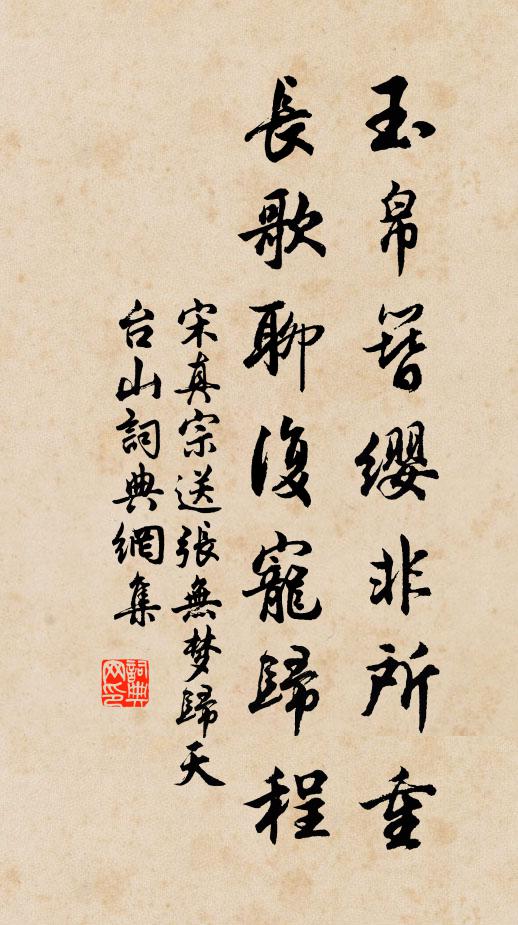 玉帛簪纓非所重
長歌聊復寵歸程
宋真宗送張無梦歸天
台山詞典網集
詞典网印